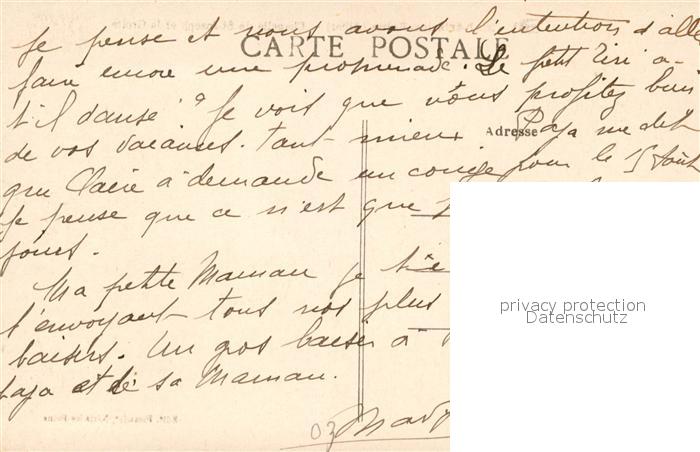 Je pense et nous avons l'intention d'aller
CARTE POSTALE
faire encore une promenade. Le petit Riri a-
t-il dansé? Je vois que vous profitez bien
Adresse
de vos vacances. Tant mieux. Papa me dit
que Claire a demandé un congé pour le 15 Août
Je pense que ce n'est que
jours.
Ma petite Maman je te
t'envoyant tous nos plus
baisers. Un gros baiser à
Papa et de sa Maman.
privacy protection
Datenschutz